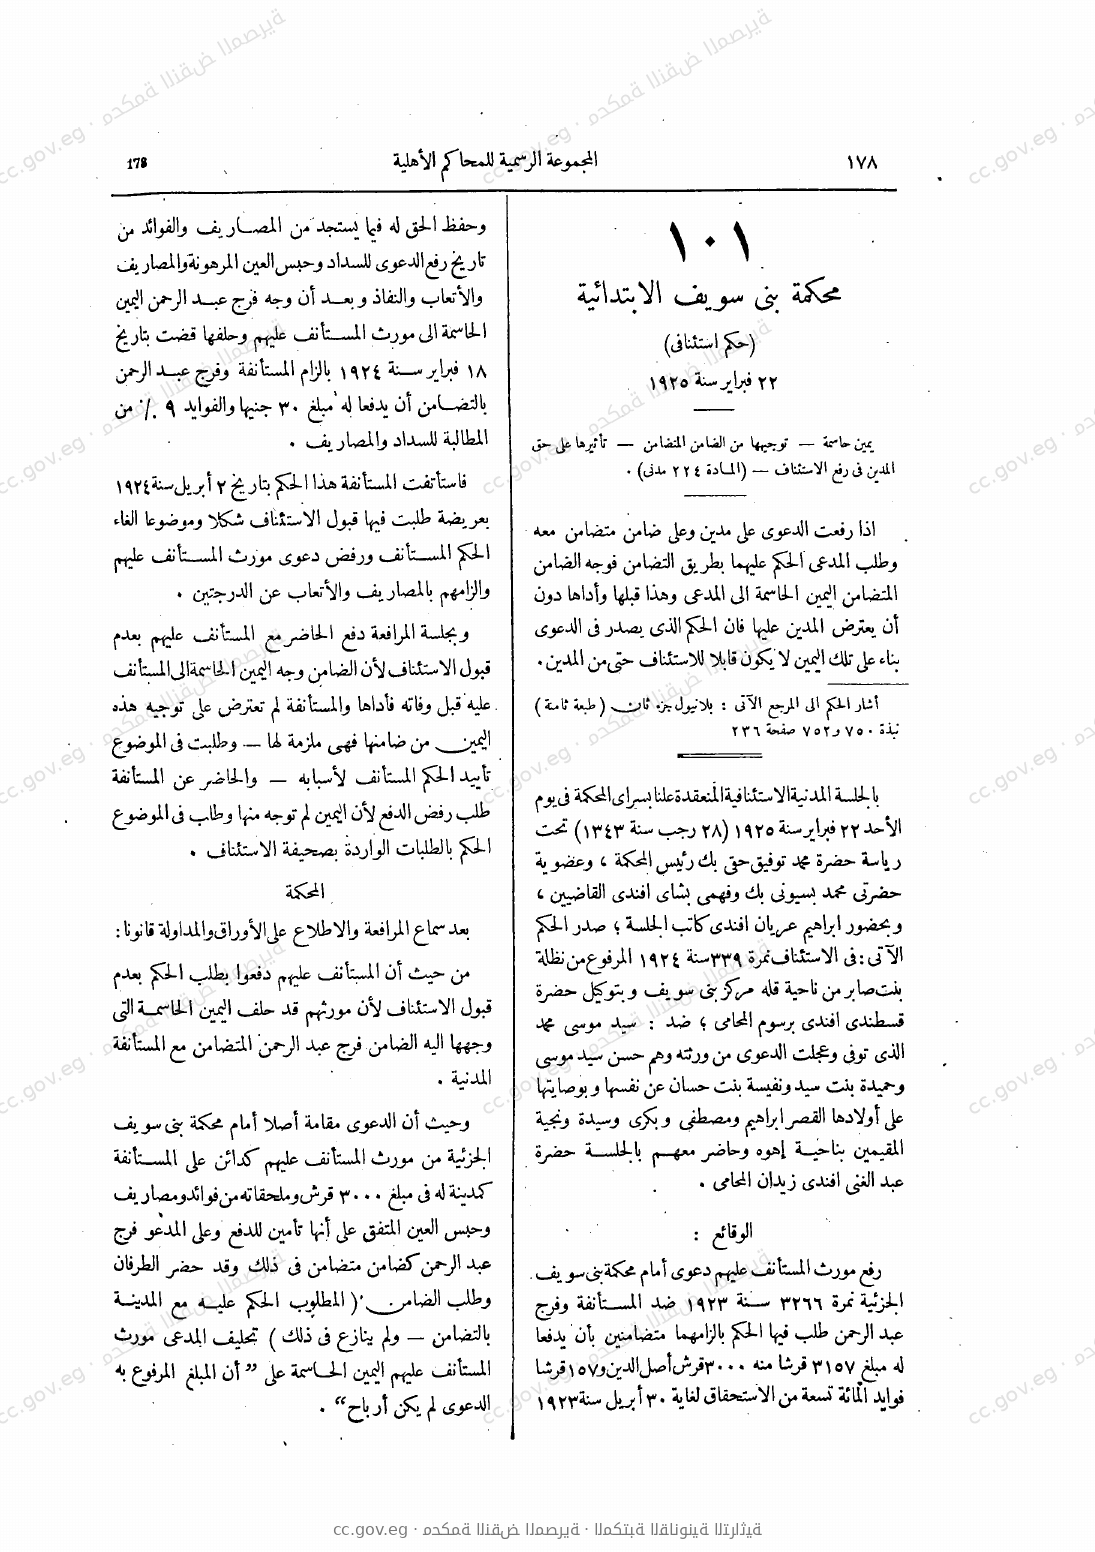 ١٧٨
المجموعة الرسمية للمحاكم الأهلية
178
١٠١
محكمة بنى سويف الابتدائية
(حكم استئنافى)
٢٢ فبراير سنة ١٩٢٥
يمين حاسمة — توجيهها من الضامن المتضامن — تأثيرها على حق
المدين فى رفع الاستئناف — (المادة ٢٢٤ مدنى) .
اذا رفعت الدعوى على مدين وعلى ضامن متضامن معه
وطلب المدعى الحكم عليهما بطريق التضامن فوجه الضامن
المتضامن اليمين الحاسمة الى المدعى وهذا قبلها وأداها دون
أن يعترض المدين عليها فان الحكم الذى يصدر فى الدعوى
بناء على تلك اليمين لا يكون قابلا للاستئناف حتى من المدين .
أشار الحكم الى المرجع الآتى : بلانيول جزء ثان (طبعة ثامنة)
نبذة ٧٥٠ و٧٥٢ صفحة ٢٣٦
بالجلسة المدنية الاستئنافية المنعقدة علنا بسراى المحكمة فى يوم
الأحد ٢٢ فبراير سنة ١٩٢٥ (٢٨ رجب سنة ١٣٤٣) تحت
رياسة حضرة محمد توفيق حقى بك رئيس المحكمة ، وعضوية
حضرتى محمد بسيونى بك وفهمى بشاى افندى القاضيين ،
وبحضور ابراهيم عريان افندى كاتب الجلسة ؛ صدر الحكم
الآتى : فى الاستئناف نمرة ٣٣٩ سنة ١٩٢٤ المرفوع من نظلة
بنت صابر من ناحية قله مركز بنى سويف وبتوكيل حضرة
قسطندى افندى برسوم المحامى ؛ ضد : سيد موسى محمد
الذى توفى وعجلت الدعوى من ورثته وهم حسن سيد موسى
وحميدة بنت سيد ونفيسة بنت حسان عن نفسها وبوصايتها
على أولادها القصر ابراهيم ومصطفى وبكرى وسيدة ونجية
المقيمين بناحية إهوه وحاضر معهم بالجلسة حضرة
عبد الغنى افندى زيدان المحامى .
الوقائع :
رفع مورث المستأنف عليهم دعوى أمام محكمة بنى سويف
الجزئية نمرة ٣٢٦٦ سنة ١٩٢٣ ضد المستأنفة وفرج
عبد الرحمن طلب فيها الحكم بالزامهما متضامنين بأن يدفعا
له مبلغ ٣١٥٧ قرشا منه ٣٠٠٠ قرش أصل الدين و١٥٧ قرشا
فوايد المائة تسعة من الاستحقاق لغاية ٣٠ أبريل سنة ١٩٢٣
وحفظ الحق له فيما يستجد من المصاريف والفوائد من
تاريخ رفع الدعوى للسداد وحبس العين المرهونة والمصاريف
والأتعاب والنفاذ وبعد أن وجه فرج عبد الرحمن اليمين
الحاسمة الى مورث المستأنف عليهم وحلفها قضت بتاريخ
١٨ فبراير سنة ١٩٢٤ بالزام المستأنفة وفرج عبد الرحمن
بالتضامن أن يدفعا له مبلغ ٣٠ جنيها والفوايد ٩ ٪ من
المطالبة للسداد والمصاريف .
فاستأنفت المستأنفة هذا الحكم بتاريخ ٢ أبريل سنة ١٩٢٤
بعريضة طلبت فيها قبول الاستئناف شكلا وموضوعا الغاء
الحكم المستأنف ورفض دعوى مورث المستأنف عليهم
والزامهم بالمصاريف والأتعاب عن الدرجتين .
وبجلسة المرافعة دفع الحاضر مع المستأنف عليهم بعدم
قبول الاستئناف لأن الضامن وجه اليمين الحاسمة الى المستأنف
عليه قبل وفاته فأداها والمستأنفة لم تعترض على توجيه هذه
اليمين من ضامنها فهى ملزمة لها — وطلبت فى الموضوع
تأييد الحكم المستأنف لأسبابه — والحاضر عن المستأنفة
طلب رفض الدفع لأن اليمين لم توجه منها وطلب فى الموضوع
الحكم بالطلبات الواردة بصحيفة الاستئناف .
المحكمة
بعد سماع المرافعة والاطلاع على الأوراق والمداولة قانونا :
من حيث أن المستأنف عليهم دفعوا بطلب الحكم بعدم
قبول الاستئناف لأن مورثهم قد حلف اليمين الحاسمة التى
وجهها اليه الضامن فرج عبد الرحمن المتضامن مع المستأنفة
المدنية .
وحيث أن الدعوى مقامة أصلا أمام محكمة بنى سويف
الجزئية من مورث المستأنف عليهم كدائن على المستأنفة
كمدينة له فى مبلغ ٣٠٠٠ قرش وملحقاته من فوائد ومصاريف
وحبس العين المتفق على أنها تأمين للدفع وعلى المدعو فرج
عبد الرحمن كضامن متضامن فى ذلك وقد حضر الطرفان
وطلب الضامن (المطلوب الحكم عليه مع المدينة
بالتضامن — ولم ينازع فى ذلك) تحليف المدعى مورث
المستأنف عليهم اليمين الحاسمة على "أن المبلغ المرفوع به
الدعوى لم يكن أرباح" .
cc.gov.eg · محكمة النقض المصرية · المكتبة القانونية التراثية